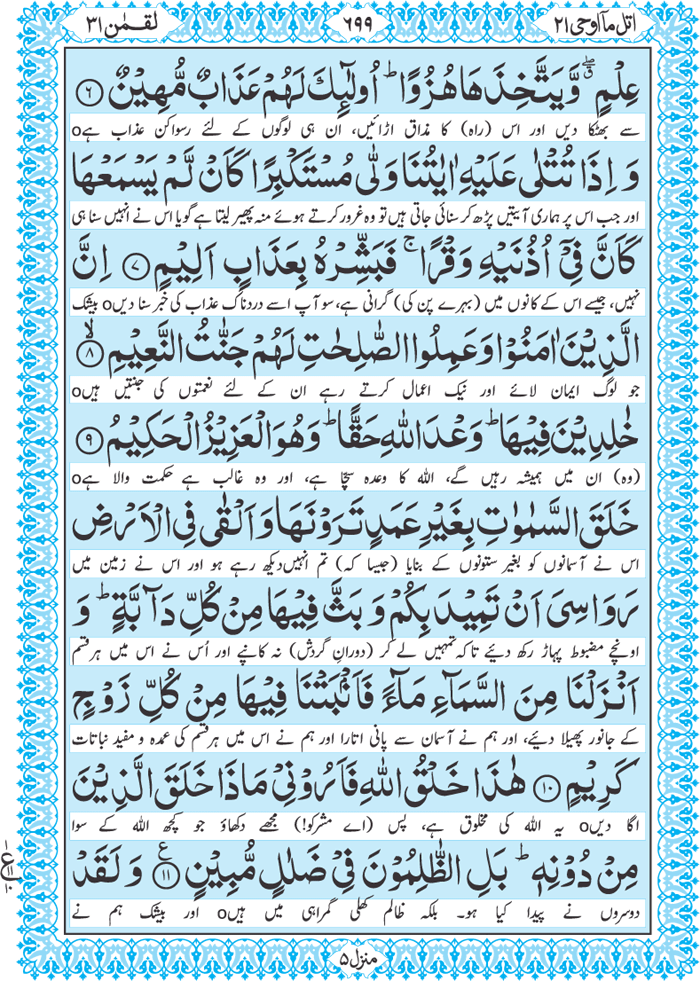 اتل ماۤ اوحی ۲۱
۶۹۹
لقمٰن ۳۱
عِلْمٍ ۖۗ وَّیَتَّخِذَهَا هُزُوًا ؕ اُولٰٓئِكَ لَهُمْ عَذَابٌ مُّهِیْنٌ ۶
سے بھٹکا دیں اور اس (راہ) کا مذاق اڑائیں، ان ہی لوگوں کے لئے رسوا کن عذاب ہےo
وَ اِذَا تُتْلٰی عَلَیْهِ اٰیٰتُنَا وَلّٰی مُسْتَكْبِرًا كَاَنْ لَّمْ یَسْمَعْهَا
اور جب اس پر ہماری آیتیں پڑھ کر سنائی جاتی ہیں تو وہ غرور کرتے ہوئے منہ پھیر لیتا ہے گویا اس نے انہیں سنا ہی
كَاَنَّ فِیْۤ اُذُنَیْهِ وَقْرًا ۚ فَبَشِّرْهُ بِعَذَابٍ اَلِیْمٍ ۷ اِنَّ
نہیں، جیسے اس کے کانوں میں (بہرے پن کی) گرانی ہے، سو آپ اسے دردناک عذاب کی خبر سنا دیںo بیشک
الَّذِیْنَ اٰمَنُوْا وَ عَمِلُوا الصّٰلِحٰتِ لَهُمْ جَنّٰتُ النَّعِیْمِ ۸ۙ
جو لوگ ایمان لائے اور نیک اعمال کرتے رہے ان کے لئے نعمتوں کی جنتیں ہیںo
خٰلِدِیْنَ فِیْهَا ؕ وَعْدَ اللّٰهِ حَقًّا ؕ وَ هُوَ الْعَزِیْزُ الْحَكِیْمُ ۹
(وہ) ان میں ہمیشہ رہیں گے، اللہ کا وعدہ سچّا ہے، اور وہ غالب ہے حکمت والا ہےo
خَلَقَ السَّمٰوٰتِ بِغَیْرِ عَمَدٍ تَرَوْنَهَا وَ اَلْقٰی فِی الْاَرْضِ
اس نے آسمانوں کو بغیر ستونوں کے بنایا (جیسا کہ) تم انہیں دیکھ رہے ہو اور اس نے زمین میں
رَوَاسِیَ اَنْ تَمِیْدَ بِكُمْ وَ بَثَّ فِیْهَا مِنْ كُلِّ دَآبَّةٍ ؕ وَ
اونچے مضبوط پہاڑ رکھ دیئے تاکہ تمہیں لے کر (دورانِ گردش) نہ کانپے اور اُس نے اس میں ہر قسم
اَنْزَلْنَا مِنَ السَّمَآءِ مَآءً فَاَنْۢبَتْنَا فِیْهَا مِنْ كُلِّ زَوْجٍ
کے جانور پھیلا دیئے، اور ہم نے آسمان سے پانی اتارا اور ہم نے اس میں ہر قسم کی عمدہ و مفید نباتات
كَرِیْمٍ ۱۰ هٰذَا خَلْقُ اللّٰهِ فَاَرُوْنِیْ مَاذَا خَلَقَ الَّذِیْنَ
اگا دیںo یہ اللہ کی مخلوق ہے، پس (اے مشرکو!) مجھے دکھاؤ جو کچھ اللہ کے سوا
مِنْ دُوْنِهٖ ؕ بَلِ الظّٰلِمُوْنَ فِیْ ضَلٰلٍ مُّبِیْنٍ ۱۱ ع وَ لَقَدْ
دوسروں نے پیدا کیا ہو۔ بلکہ ظالم کھلی گمراہی میں ہیںo اور بیشک ہم نے
منزل ۵